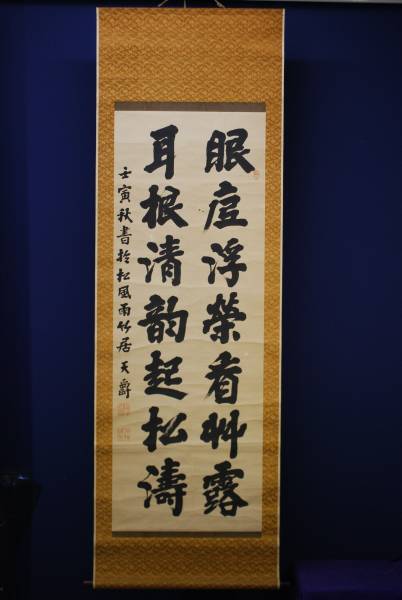 眼底浮榮看艸露
耳根清韵起松濤
壬寅秋書於松風雨竹居 天爵